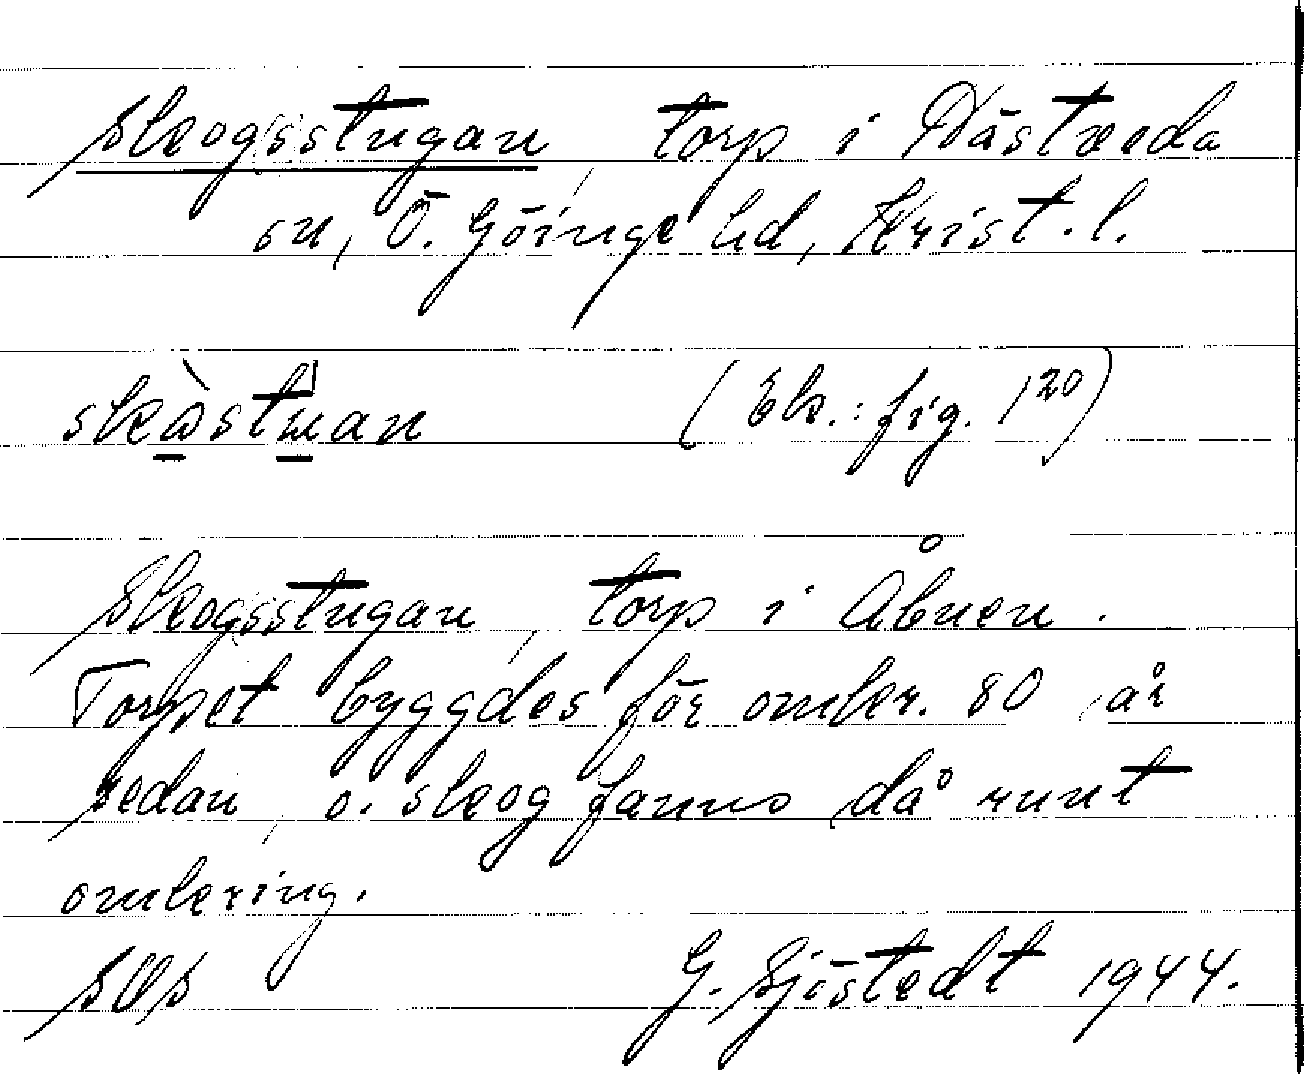 Skogsstugan, torp i Nästveda
sn, Ö. Göinge hd, Krist. l.
skɷ̀stɯan (Ek.: fig. 120)
Skogsstugan, torp i Åbuen.
Torpet byggdes för omkr. 80 år
sedan, o. skog fanns då runt
omkring.
G. Sjöstedt 1944.